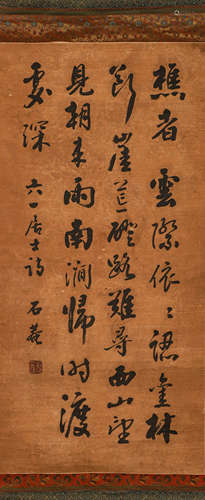 樵者雲際依〻認舊林
斷崖荒磴路難尋西山望
見朝来雨南澗歸时渡
處深 六一居士詩 石菴